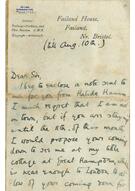 Failand House,
Failand,
Nr. Bristol.
(till Aug. 10th.)
Dear Sir,
I beg to enclose a note sent to
for you from Halidé Hanum
I much regret that I am not
in town, but if you are staying
until the 8th. of this month
I would propose your coming
down to see me at my little
cottage at Great Hampden, why
is near enough to London to
allow of your coming down